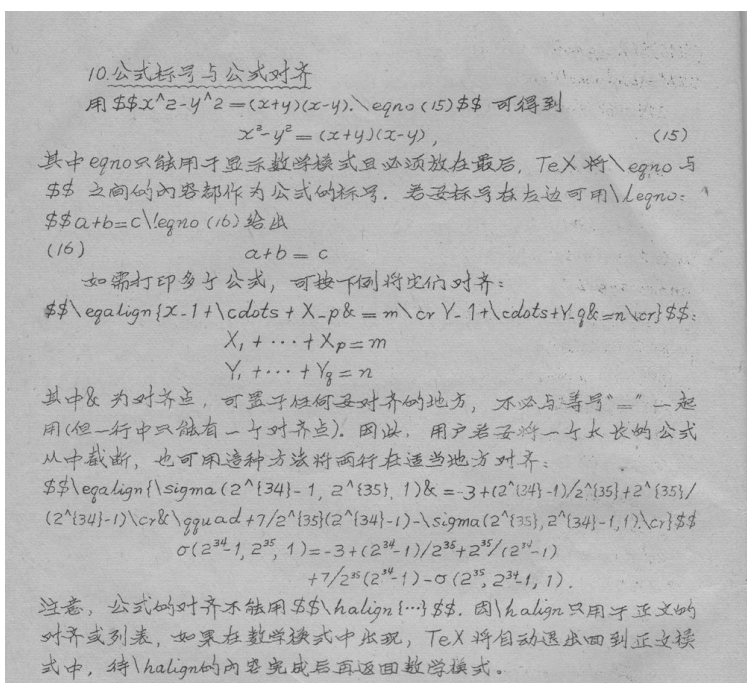 10.公式标号与公式对齐
用$$x^2-y^2=(x+y)(x-y).\eqno(15)$$可得到
x²-y²=(x+y)(x-y), (15)
其中eqno只能用于显示数学模式且必须放在最后, TeX将\eqno与
$$之间的内容都作为公式的标号. 若要标号在左边可用\leqno:
$$a+b=c\leqno(16)给出
(16) a+b=c
如需打印多个公式, 可按下例将它们对齐:
$$\eqalign{x_1+\cdots+X_p&=m\cr Y_1+\cdots+Y_q&=n\cr}$$:
X₁+···+Xp=m
Y₁+···+Yq=n
其中&为对齐点, 可置于任何要对齐的地方, 不必与等号"="一起
用(但一行中只能有一个对齐点). 因此, 用户若要将一个太长的公式
从中截断, 也可用这种方法将两行在适当地方对齐:
$$\eqalign{\sigma(2^{34}-1, 2^{35}, 1)&=-3+(2^{34}-1)/2^{35}+2^{35}/
(2^{34}-1)\cr&\qquad+7/2^{35}(2^{34}-1)-\sigma(2^{35},2^{34}-1,1)\cr}$$
σ(2³⁴-1, 2³⁵, 1)=-3+(2³⁴-1)/2³⁵+2³⁵/(2³⁴-1)
+7/2³⁵(2³⁴-1)-σ(2³⁵, 2³⁴-1, 1).
注意, 公式的对齐不能用$$\halign{…}$$. 因\halign只用于正文的
对齐或列表, 如果在数学模式中出现, TeX将自动退出回到正文模
式中, 待\halign的内容完成后再返回数学模式。